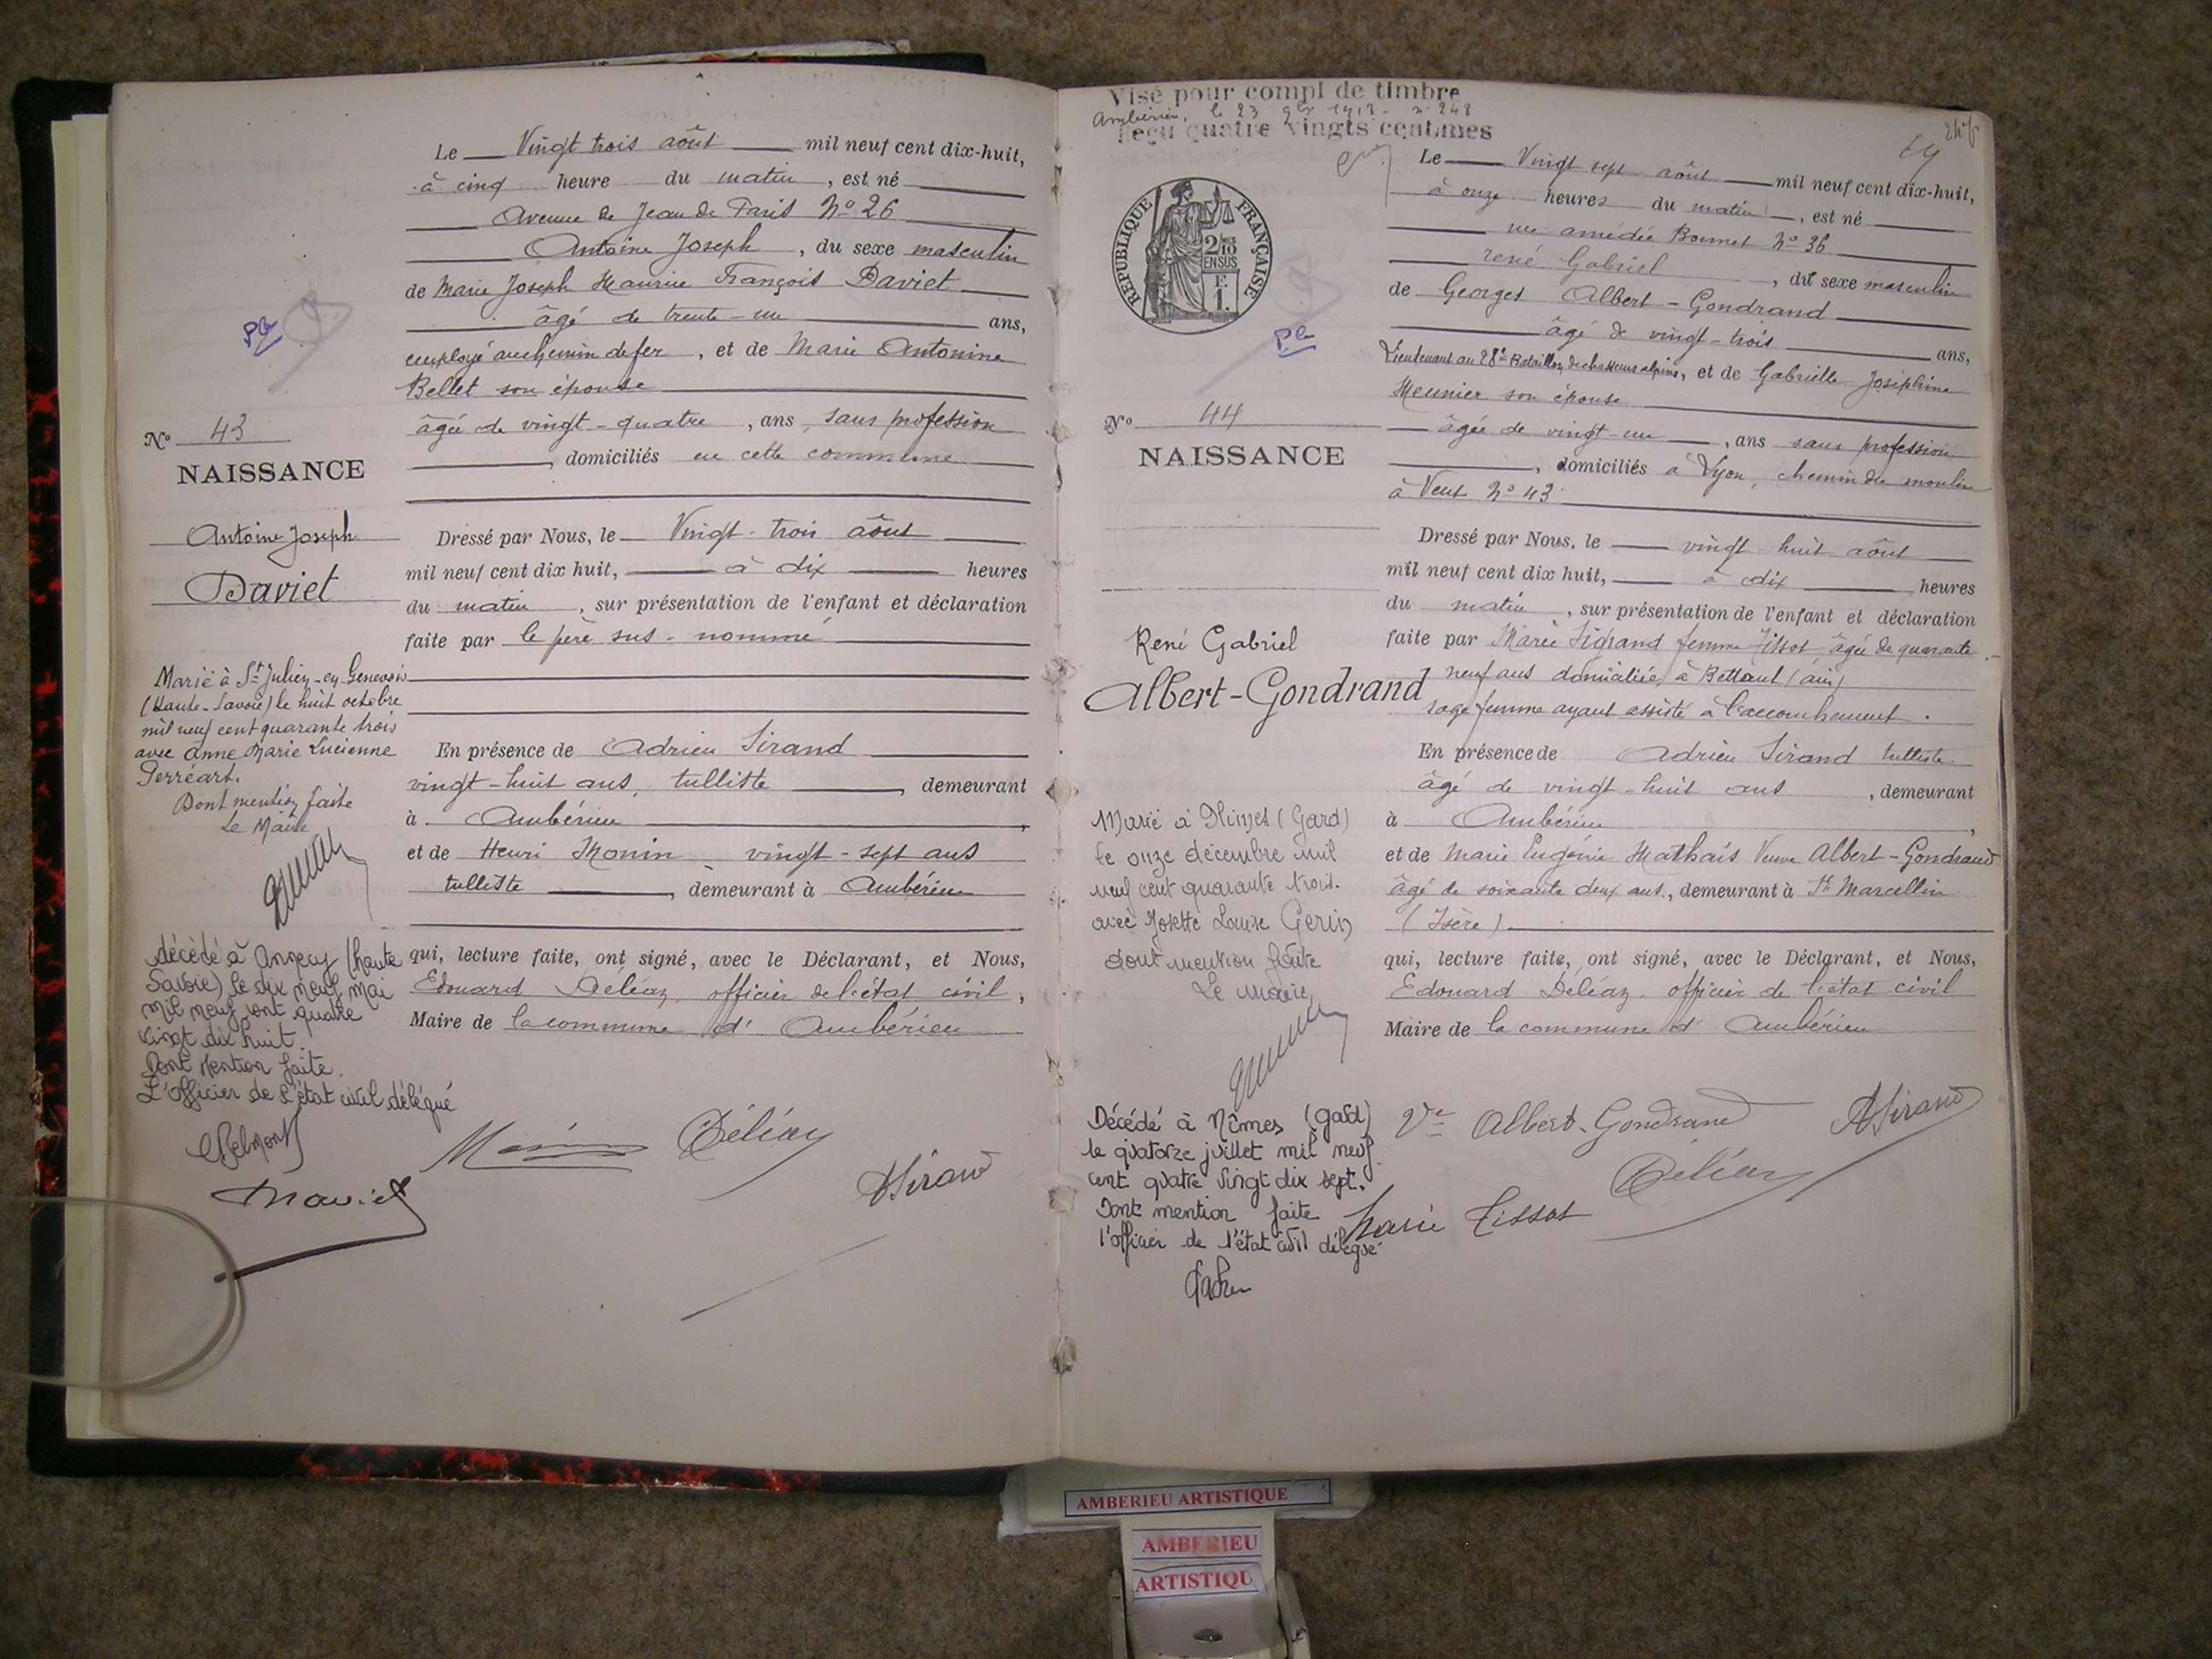 Le Vingt trois août mil neuf cent dix-huit,
à cinq heure du matin, est né
Avenue de Jean de Paris No 26
Antoine Joseph, du sexe masculin
de Marie Joseph Maurice François Daviet
âgé de trente-un ans,
employé au chemin de fer, et de Marie Antonine
Bellet son épouse
No 43
âgée de vingt-quatre, ans, sans profession
NAISSANCE
domiciliés en cette commune
Antoine Joseph
Daviet
Dressé par Nous, le Vingt-trois août
mil neuf cent dix huit, à dix heures
du matin, sur présentation de l'enfant et déclaration
faite par le père sus-nommé
Marié à St Julien-en-Genevois
(Haute-Savoie) le huit octobre
mil neuf cent quarante trois
avec Anne Marie Lucienne
Perréart.
Dont mention faite
Le Maire
En présence de Adrien Sirand
vingt-huit ans, tulliste, demeurant
à Ambérieu
et de Henri Monin vingt-sept ans
tulliste, demeurant à Ambérieu
décédé à Annecy (haute
Savoie) le dix neuf mai
mil neuf cent quatre
vingt dix huit.
Dont Mention faite.
L'Officier de l'état civil délégué
qui, lecture faite, ont signé, avec le Déclarant, et Nous,
Edouard Déléaz, officier de l'état civil,
Maire de la commune d'Ambérieu
Monin Déléaz
ASirand
Daviet
Visé pour compl de timbre
Ambérieu, le 23 9bre 1918 - n° 248
Reçu quatre vingts centimes
REPUBLIQUE FRANÇAISE
2/10
EN SUS
F.
1.
Le Vingt sept août mil neuf cent dix-huit,
à onze heures du matin, est né
rue amédée Bonnet No 36
rené Gabriel, du sexe masculin
de Georges Albert-Gondrand
âgé de vingt-trois ans,
Lieutenant au 28e Bataillon de chasseurs alpins, et de Gabrielle Joséphine
Meunier son épouse
No 44
âgée de vingt-un, ans sans profession
NAISSANCE
domiciliés à Lyon, chemin du moulin
à Vent No 43
Dressé par Nous, le vingt-huit août
mil neuf cent dix huit, à dix heures
du matin, sur présentation de l'enfant et déclaration
René Gabriel
Albert-Gondrand
faite par Marie femme Tissot, âgée de quarante-
neuf ans domiciliée à Bettant (ain)
sage femme ayant assisté à l'accouchement.
En présence de Adrien Sirand tulliste
âgé de vingt-huit ans, demeurant
à Ambérieu,
et de Marie Eugénie Mathais Veuve Albert-Gondrand
âgé de soixante deux ans, demeurant à St Marcellin
(Isère)
Marié à Nimes (Gard)
le onze décembre mil
neuf cent quarante trois.
avec Josette Louise Gerin
dont mention faite
Le Maire
qui, lecture faite, ont signé, avec le Déclarant, et Nous,
Edouard Déléaz, officier de l'état civil
Maire de la commune d'Ambérieu
Décédé à Nîmes (gard)
le quatorze juillet mil neuf
cent quatre vingt dix sept.
Dont mention faite
l'officier de l'état civil délégué
Ve Albert-Gondrand
ASirand
Déléaz
Marie Tissot
AMBERIEU ARTISTIQUE
AMBERIEU
ARTISTIQU